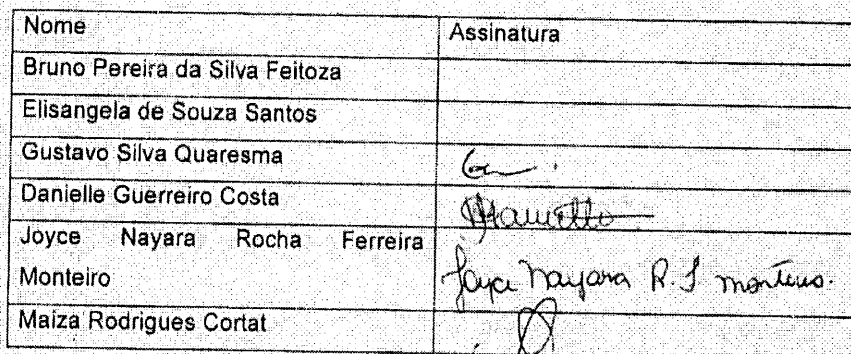 Nome Assinatura
Bruno Pereira da Silva Feitoza
Elisangela de Souza Santos
Gustavo Silva Quaresma
Danielle Guerreiro Costa
Joyce Nayara Rocha Ferreira
Monteiro Nayara R.
Maiza Rodrigues Cortat